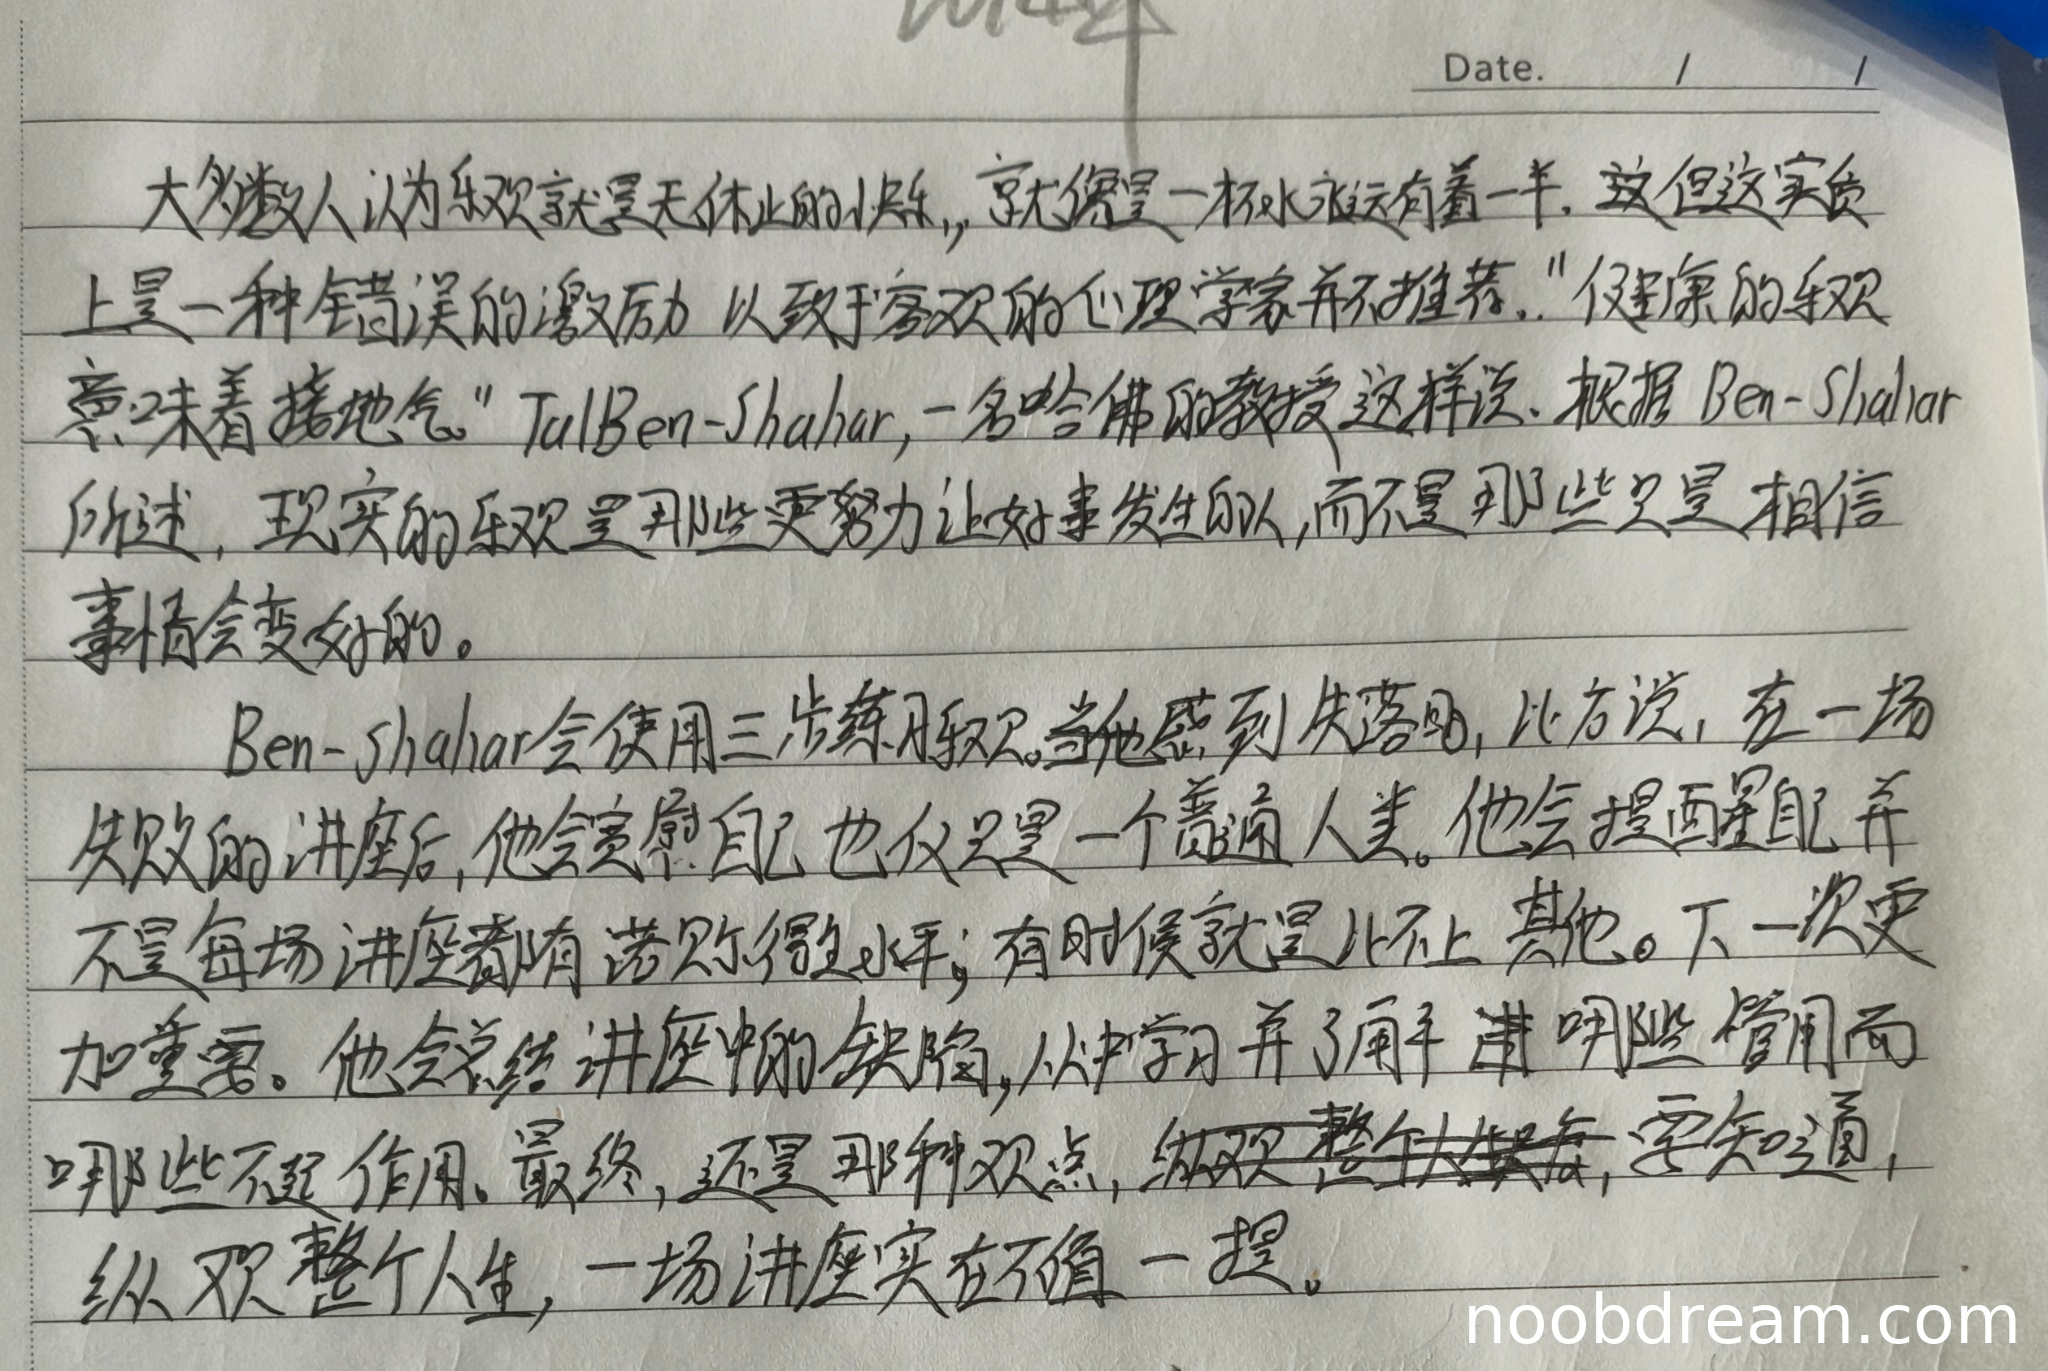 2014年
Date. / /
大多数人认为乐观就是无休止的快乐,,就像是一杯水永远有着一半.这但这实质
上是一种错误的激励 以致于客观的心理学家并不推荐.."健康的乐观
意味着接地气。"TalBen-Shahar,一名哈佛的教授这样说.根据 Ben-Shahar
所述,现实的乐观是那些更努力让好事发生的人,而不是那些只是相信
事情会变好的。
Ben-Shahar会使用三步练习乐观。当他感到失落时,比方说,在一场
失败的讲座后,他会宽慰自己也仅只是一个普通人类。他会提醒自己并
不是每场讲座都有诺贝尔得主水平;有时候就是比不上其他。下一次更
加重要。他会总结讲座中的缺陷,从中学习并了解 讲 哪些管用而
哪些不起作用。最终,还是那种观点,纵观整个人生,要知道,
纵观整个人生,一场讲座实在不值一提。
noobdream.com